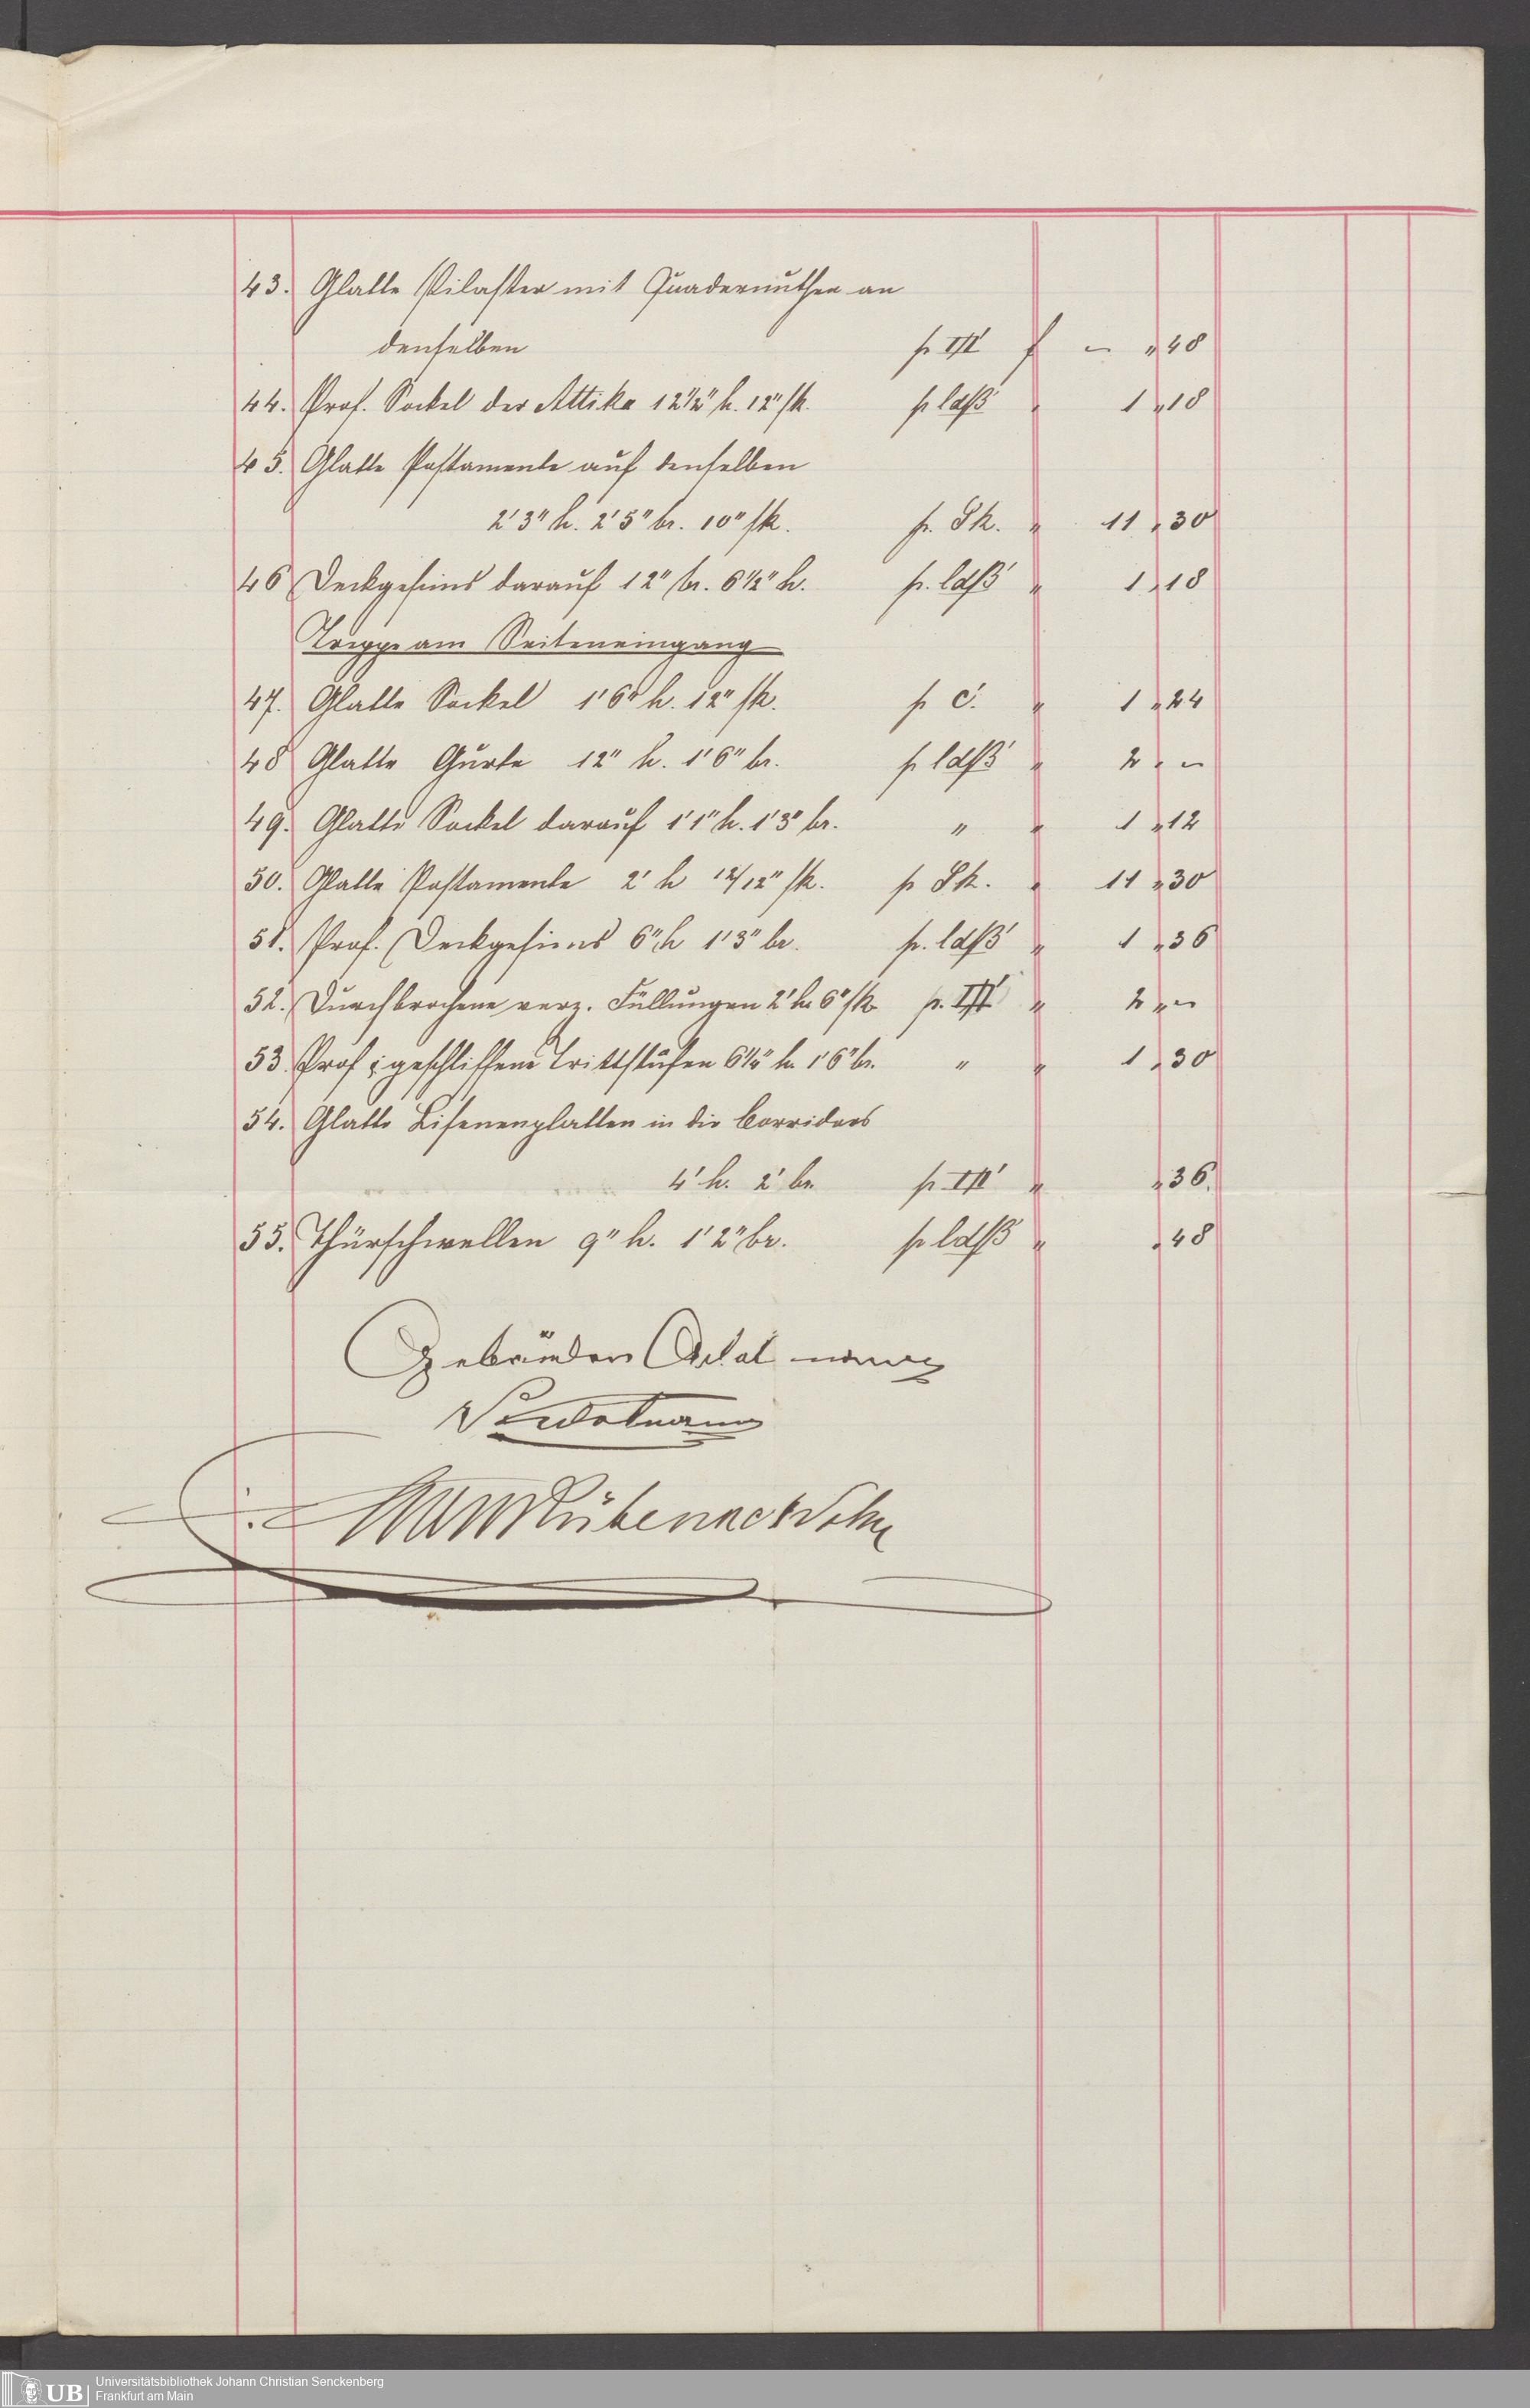 43. Glatte Pilaster mit Quadernuthen an
denselben pr □' f – „ 48
44. Prof. Sockel der Attika 12½" h. 12" stk. pr ldfß' „ 1 „ 18
45. Glatte Postamente auf denselben
2'3" h. 2'5" br. 10" stk. pr. Stk. „ 11 „ 30
46 Deckgesims darauf 12" br. 6½" h. pr. ldfß' „ 1 „ 18
Treppe am Seiteneingang
47. Glatte Sockel 1'6" h. 12" stk. pr c'. „ 1 „ 24
48 Glatte Gurte 12" h. 1'6" br. pr ldfß' „ 2 „ –
49. Glatte Sockel darauf 1'1" h. 1'3" br. " „ 1 „ 12
50. Glatte Postamente 2' h 12/12" stk. pr Stk. „ 11 „ 30
51. Prof. Deckgesims 6" h 1'3" br. pr. ldfß' „ 1 „ 36
52. Durchbrochene verz. Füllungen 2' h. 6" stk pr. □' „ 2 „ –
53. Prof: geschliffene Trittstufen 6½" h. 1'6" br. " „ 1 „ 30
54. Glatte Lisenenplatten in die Corridors
4' h. 2' br. pr □' „ „ 36.
55. Thürschwellen 9" h. 1'2" br. pr ldfß „ „ 48
Gebrüder
Universitätsbibliothek Johann Christian Senckenberg
UB Frankfurt am Main